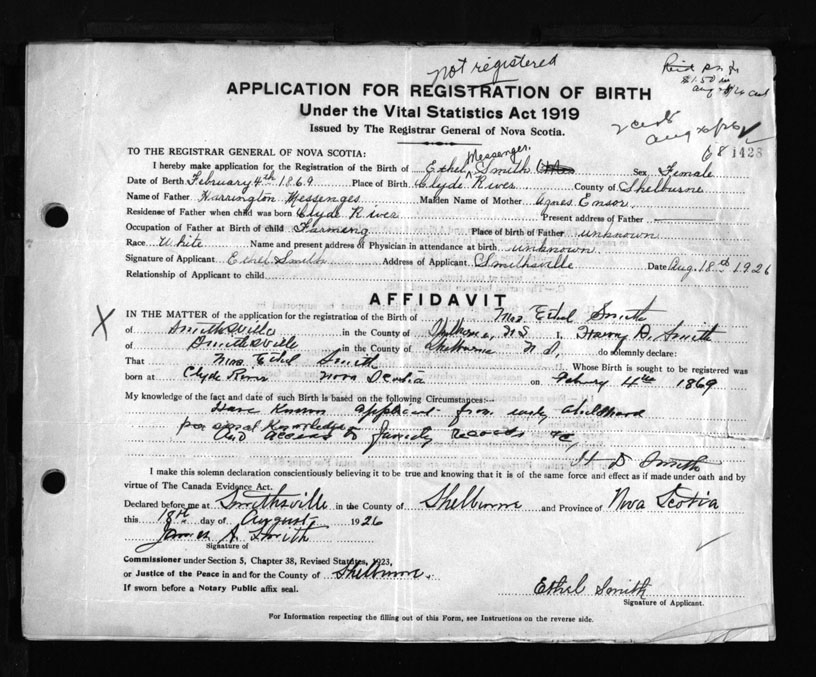 not registered
$1.50
APPLICATION FOR REGISTRATION OF BIRTH
Under the Vital Statistics Act 1919
Issued by The Registrar General of Nova Scotia.
68 1428
TO THE REGISTRAR GENERAL OF NOVA SCOTIA:
Messenger.
I hereby make application for the Registration of the Birth of Ethel Smith Sex Female
Date of Birth February 4th 1869 Place of Birth Clyde River County of Shelburne
Name of Father Harrington Messenger Maiden Name of Mother Agnes Ensor
Residense of Father when child was born Clyde River Present address of Father
Occupation of Father at Birth of child Farming Place of birth of Father unknown
Race White Name and present address of Physician in attendance at birth unknown
Signature of Applicant Ethel Smith Address of Applicant Smithsville Date Aug. 18th 1926
Relationship of Applicant to child
AFFIDAVIT
X
IN THE MATTER of the application for the registration of the Birth of Mrs. Ethel Smith
of Smithsville in the County of Shelburne, NS I, Harvy D. Smith
of Smithsville in the County of Shelburne N.S, do solemnly declare:
That Mrs. Ethel Smith Whose Birth is sought to be registered was
born at Clyde River Nova Scotia on Febury 4th 1869
My knowledge of the fact and date of such Birth is based on the following Circumstances:—
Have Known applicant from early childhood
personal Knowledge
and access to family records
H D Smith
I make this solemn declaration conscientiously believing it to be true and knowing that it is of the same force and effect as if made under oath and by
virtue of The Canada Evidence Act.
Declared before me at Smithsville in the County of Shelburne and Province of Nova Scotia
this 18th day of August, 1926
James A Smith
Signature of
Commissioner under Section 5, Chapter 38, Revised Statutes, 1923,
or Justice of the Peace in and for the County of Shelburne.
If sworn before a Notary Public affix seal.
Ethel Smith
Signature of Applicant.
For Information respecting the filling out of this Form, see Instructions on the reverse side.